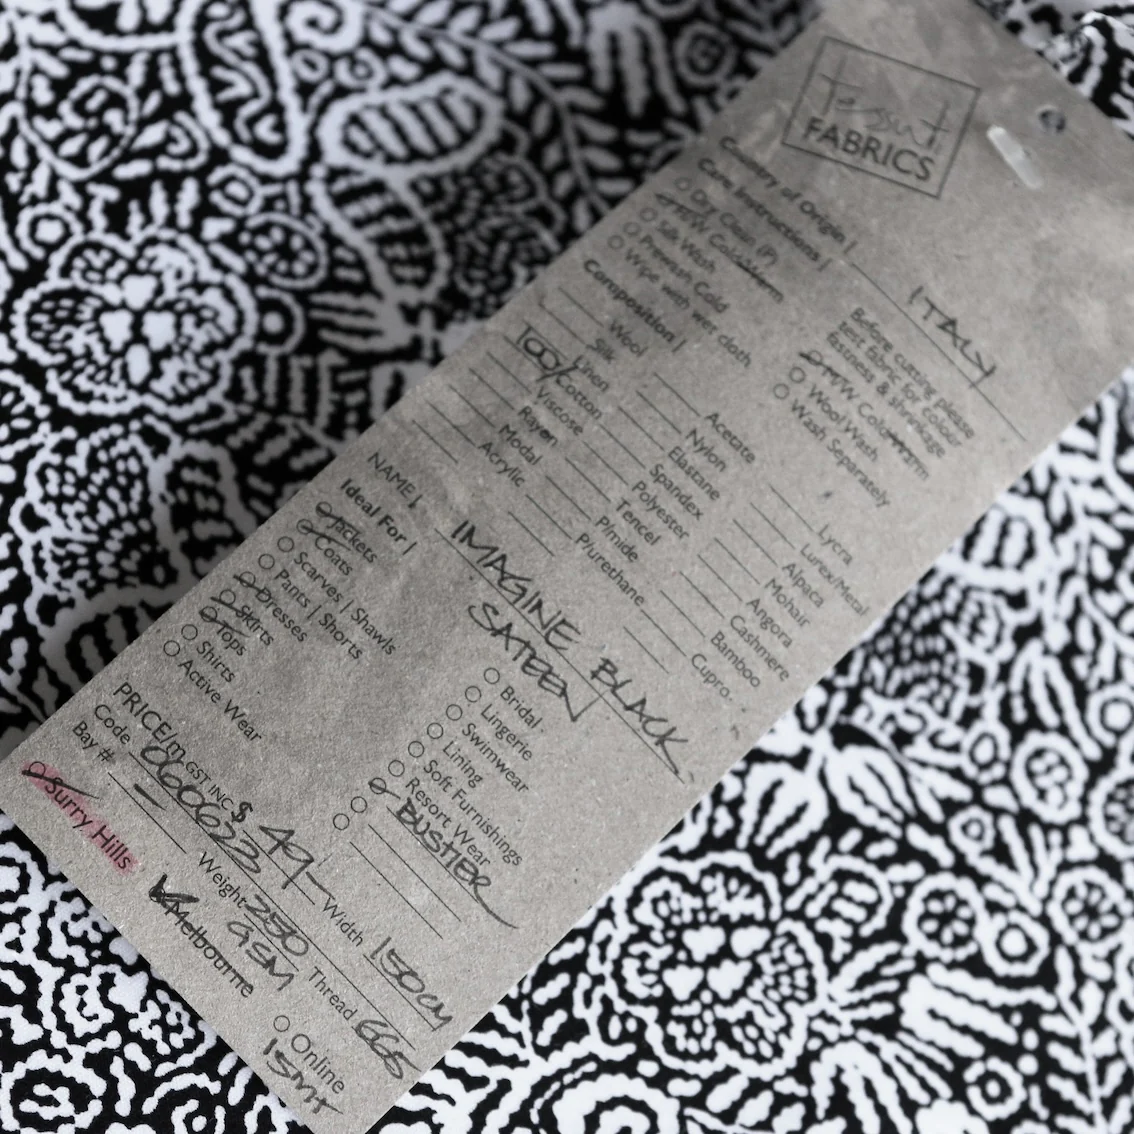 Tessuti
FABRICS
Country of Origin | ITALY
Care Instructions |
Dry Clean (P)
H/W Cold/Warm
Silk Wash
Prewash Cold
Wipe with wet cloth
Before cutting please
test fabric for colour
fastness & shrinkage
M/W Cold/Warm
Wool Wash
Wash Separately
Composition |
Wool
Silk
Linen
100% Cotton
Viscose
Rayon
Modal
Acrylic
Acetate
Nylon
Elastane
Spandex
Polyester
Tencel
P/mide
P/urethane
Lycra
Lurex/Metal
Alpaca
Mohair
Angora
Cashmere
Bamboo
Cupro.
NAME | IMAGINE BLACK
SATEEN
Ideal For |
Jackets
Coats
Scarves | Shawls
Pants | Shorts
Dresses
Skirts
Tops
Shirts
Active Wear
Bridal
Lingerie
Swimwear
Lining
Soft Furnishings
Resort Wear
BUSTIER
PRICE/m GST INC $ 49- Width 150CM
Code 060623 Weight 250 GSM Thread 665
Bay # -
Surry Hills
Melbourne
Online
15MT